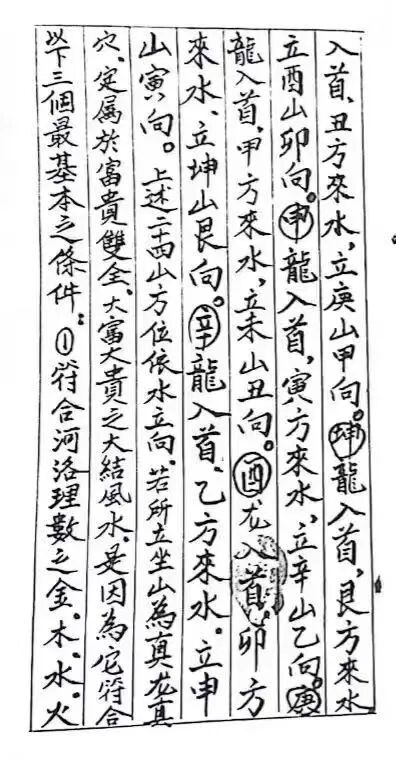 入首，丑方來水，立庚山甲向。坤龍入首，艮方來水
立酉山卯向。申龍入首，寅方來水，立辛山乙向。庚
龍入首，甲方來水，立未山丑向。酉龙入首。卯方
來水、立坤山艮向。辛龍入首、乙方來水。立申
山寅向。上述二十四山方位依水立向、若所立坐山為真龙真
穴、定屬於富貴雙全、大富大貴之大結風水、是因為它符合
以下三個最基本之條件：①符合河洛理數之金、木、水、火